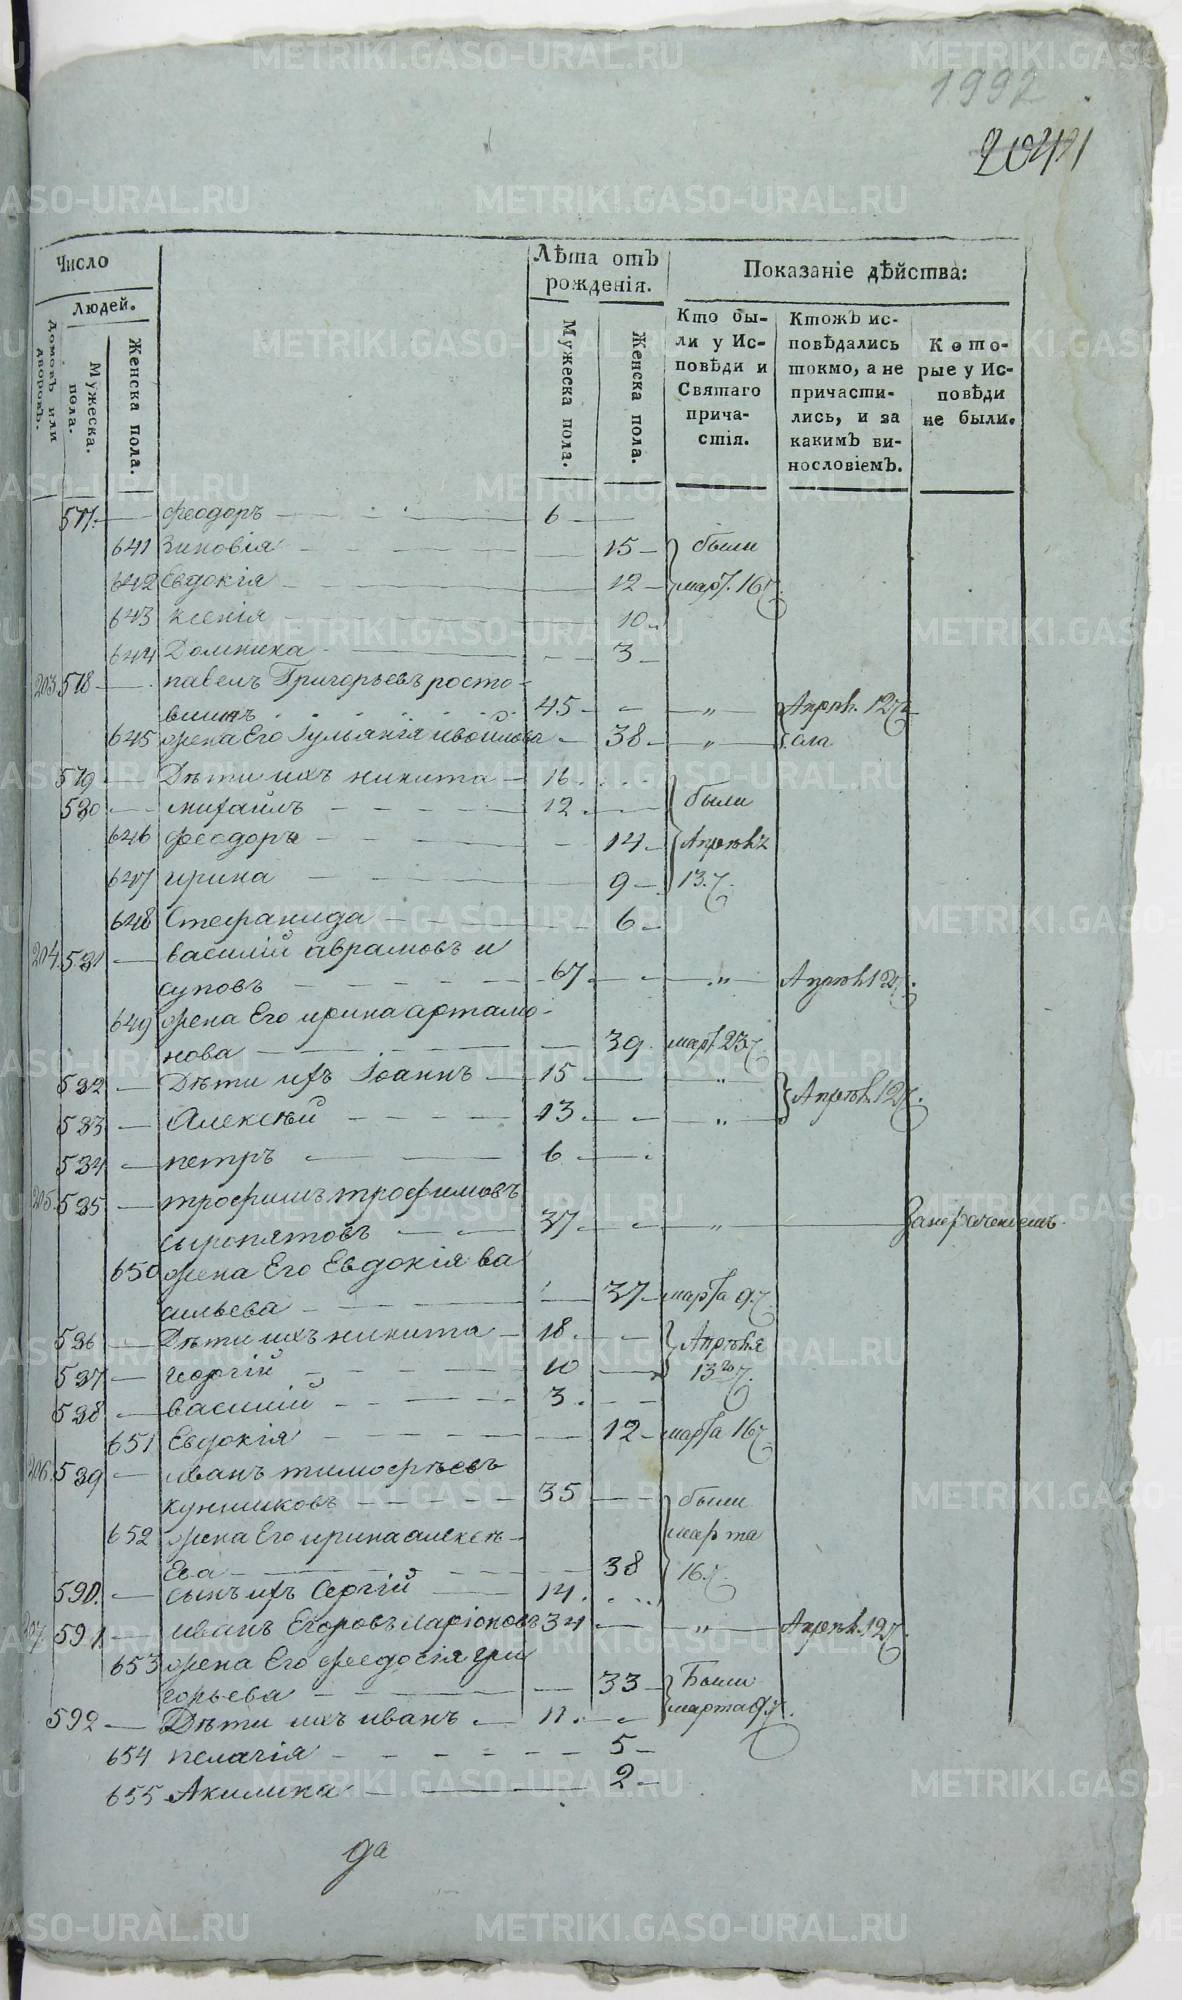 1992
2041
Число
Людей.
Домовъ или дворовъ.
Мужеска. пола.
Женска пола.
Лѣта отъ рожденія.
Мужеска пола.
Женска пола.
Показаніе дѣйства:
Кто бы-
ли у Ис-
повѣди и
Святаго
прича-
стія.
Ктожъ ис-
повѣдались
токмо, а не
причасти-
лись, и за
какимъ ви-
нословіемъ.
Кото-
рые у Ис-
повѣди
не были.
577. феодоръ 6
641 Зиновія 15 были
642 Евдокія 12 март. 16
643 ксенія 10
644 Домника 3
203 578 павелъ Григорьевъ росто-
45 Апрѣл. 12
645 жена Его 38
579 Дѣти ихъ никита 16
580 михаилъ 12 были
646 феодора 14 Апрѣля
647 ирина 9 13.
648 Стефанида 6
204. 581 василій аврамовъ и
суповъ 67 Апрѣл. 12
649 жена Его ирина артамо-
нова 39. март 23
582 Дѣти ихъ Іоаннъ 15
583 Алексѣй 13 Апрѣл. 12
584 петръ 6
205. 585 трофимъ трофимовъ
сыропятовъ 37
650 жена Его Евдокія ва
сильева 37 марта 9
586 Дѣти ихъ никита 18 Апрѣля
587 георгій 10 13
588 василій 3
651 Евдокія 12 марта 16
206. 589 иванъ тимофѣевъ
35 были
652 жена Его ирина алексѣ-
Ева 38 марта
590. сынъ ихъ Сергій 14. 16
207. 591 иванъ Егоровъ ларіоновъ 34 Апрѣл. 12
653 жена Его феодосія гри
горьева 33 Были
592 Дѣти ихъ иванъ 11. марта 9
654 пелагія 5
655 Акилина 2